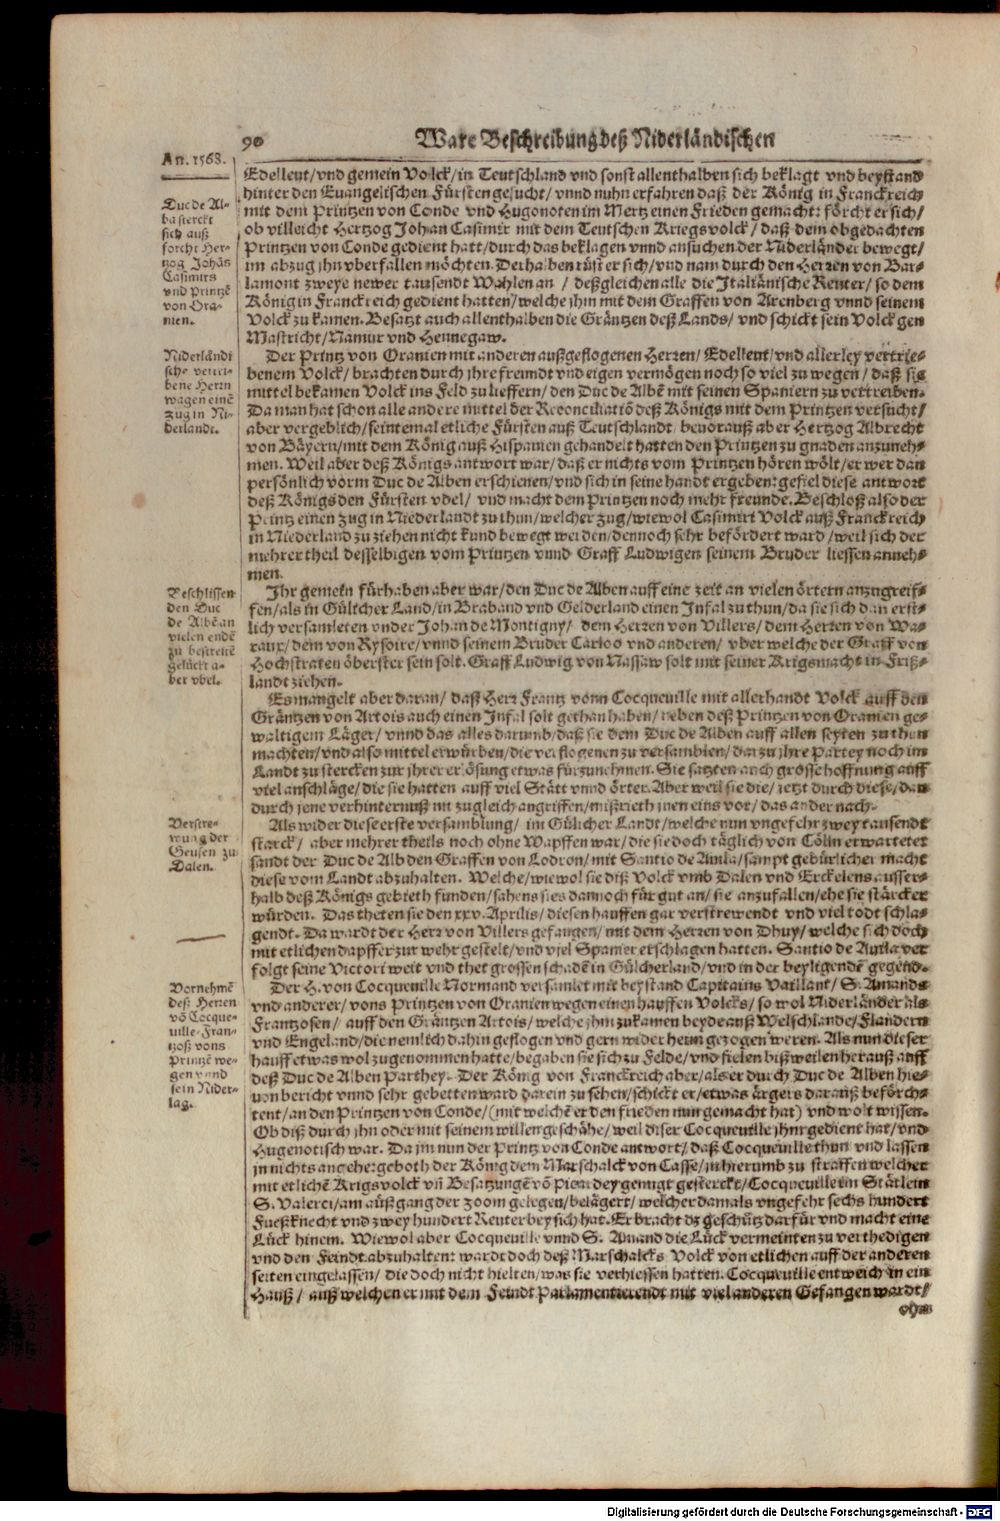 90
Ware Beschreibung deß Niderländischen
An. 1568.
Edelleut/vnd gemein Volck/in Teutschland vnd sonst allenthalben sich beklagt vnd beystand
hinter den Euangelischen Fürsten gesucht/vnnd nuhn erfahren daß der König in Franckreich
mit dem Printzen von Conde vnd Hugonoten im Mertz einen Frieden gemacht: förcht er sich/
ob villeicht Hertzog Johan Casimir mit dem Teutschen Kriegsvolck/daß dem obgedachten
Printzen von Conde gedient hatt/durch das beklagen vnnd ansuchen der Niderländer bewegt/
im abzug jhn vberfallen möchten. Derhalben rüst er sich/vnd nam durch den Herren von Bar-
lamont zweye newer tausendt Wahlen an / deßgleichen alle die Italiänische Reuter/ so dem
König in Franckreich gedient hatten/welche jhm mit dem Graffen von Arenberg vnnd seinem
Volck zu kamen. Besatzt auch allenthalben die Gräntzen deß Lands/ vnd schickt sein Volck gen
Mastricht/Namur vnd Hennegaw.
Duc de Al-
ba sterckt
sich auß
forcht Her-
tzog Johãs
Casimirs
vnd Printzẽ
von Ora-
nien.
Der Printz von Oranien mit anderen außgeflogenen Herren/ Edelleut/vnd allerley vertrie-
benem Volck/ brachten durch jhre freundt vnd eigen vermögen noch so viel zu wegen/ daß sie
mittel bekamen Volck ins Feld zu lieffern/ den Duc de Albẽ mit seinen Spaniern zu vertreiben.
Da man hat schon alle andere mittel der Reconciliatiõ deß Königs mit dem Printzen versucht/
aber vergeblich/seintemal etliche Fürsten auß Teutschlandt/ beuorauß aber Hertzog Albrecht
von Bäyern/mit dem König auß Hispanien gehandelt hatten den Printzen zu gnaden anzuneh-
men. Weil aber deß Königs antwort war/daß er nichts vom Printzen hören wölt/er wer dan
persönlich vorm Duc de Alben erschienen/vnd sich in seine handt ergeben: gefiel diese antwort
deß Königs den Fürsten vbel/ vnd macht dem Printzen noch mehr freunde. Beschloß also der
Printz einen Zug in Niederlandt zu thun/welcher zug/wiewol Casimiri Volck auß Franckreich
in Niederland zu ziehen nicht kund bewegt werden/dennoch sehr befördert ward/weil sich der
mehrer theil desselbigen vom Printzen vnnd Graff Ludwigen seinem Bruder liessen anneh-
men.
Niderländi
sche vertri-
bene Herrn
wagen einẽ
Zug in Ni-
derlandt.
Ihr gemein fürhaben aber war/den Duc de Alben auff eine zeit an vielen örtern anzugreif-
fen/als in Gülicher Land/in Braband vnd Gelderland einen Infal zu thun/da sie sich dan erst-
lich versamleten vnder Johan de Montigny/ dem Herren von Villers/dem Herren von Wa-
raux/dem von Rysoire/vnnd seinem Bruder Carloo vnd anderen/ vber welche der Graff von
Hochstraten öberster sein solt. Graff Ludwig von Nassaw solt mit seiner Krigsmacht in Friß-
landt ziehen.
Beschlissen
den Duc
de Albẽ an
vielen endẽ
zu bestreitẽ
gelückt a-
ber vbel.
Es mangelt aber daran/ dasz Herr Frantz vonn Cocqueuille mit allerhandt Volck auff den
Gräntzen von Artois auch einen Infal solt gethan haben/ neben deß Printzen von Oranien ge-
waltigem Läger/ vnnd das alles darumb/daß sie dem Duc de Alben auff allen seyten zu thun
machten/vnd also mittel erwürben/die verflogenen zu versamblen/dar zu jhre Partey noch im
Landt zu stercken zur jhrer erlösung etwas fürzunehmen. Sie satzten auch grosse hoffnung auff
viel anschläge/die sie hatten auff viel Stätt vnnd örter. Aber weil sie die/jetzt durch diese/dan
durch jene verhinternuß nit zugleich angriffen/mißrieth jnen eins vor/das ander nach.
Als wider diese erste versamblung/ im Gülicher Landt/welche nun vngefehr zwey tausendt
starck/ aber mehrer theils noch ohne Wapffen war/die sie doch täglich von Cölln erwartete:
sandt der Duc de Alb den Graffen von Lodron/mit Santio de Auila/sampt gebürlicher macht
diese vom Landt abzuhalten. Welche/wiewol sie diß Volck vmb Dalen vnd Erckelens ausser-
halb deß Königs gebieth funden/sahens sies dannoch für gut an/ sie anzufallen/ehe sie stärcker
würden. Das theten sie den xxv. Aprilis/ diesen hauffen gar verstrewendt vnd viel todt schla-
gendt. Da wardt der Herr von Villers gefangen/mit dem Herren von Dhuy/welche sich doch
mit etlichen dapffer zur wehr gestelt/vnd viel Spanier erschlagen hatten. Santio de Auila ver
folgt seine Victori weit vnd thet grossen schadẽ in Gülcherland/vnd in der beyligendẽ gegend.
Verstre-
wung der
Geusen zu
Dalen.
Der H. von Cocqueuille Normand versamlet mit beystand Capitains Vaillant/ S. Amands
vnd anderer/ vons Printzen von Oranien wegen einen hauffen Volcks/ so wol Niderländer als
Frantzosen/ auff den Gräntzen Artois/welche jhm zukamen beyde auß Welschlande/Flandern
vnd Engeland/die nemlich dahin geflogen vnd gern wider heim gezogen weren. Als nun dieser
hauff etwas wol zugenommen hatte/begaben sie sich zu Felde/vnd fielen bißweilen herauß auff
deß Duc de Alben Parthey. Der König von Franckreich aber/als er durch Duc de Alben hie-
uon bericht vnnd sehr gebetten ward darein zu sehen/schickt er/etwas ärgers darauß beförch-
tent/an den Printzen von Conde/(mit welchẽ er den frieden nun gemacht hat) vnd wolt wissen.
Ob diß durch jhn oder mit seinem willen geschähe/ weil diser Cocqueuille jhm gedient hat/vnd
Hugenotisch war. Da jm nun der Printz von Conde antwort/ daß Cocqueuille thun vnd lassen
jn nichts angehe: geboth der König dem Marschalck von Casse/jn hierumb zu straffen welcher
mit etlichẽ Krigsvolck vñ Besatzungẽ võ Picardey genugt gesterckt/Cocqueuille im Stätlein
S. Valerei/am außgang der Zoom gelegen/belägert/welcher damals vngefehr sechs hundert
Fueßknecht vnd zwey hundert Reuter bey sich hat. Er bracht dz geschütz darfür vnd macht eine
Lück hinein. Wiewol aber Cocqueuille vnnd S. Amand die Lück vermeinten zu verthedigen
vnd den Feindt abzuhalten: wardt doch deß Marschalcks Volck von etlichen auff der anderen
seiten eingelassen/ die doch nicht hielten/was sie verhiessen hatten. Cocqueuille entweich in ein
Hauß/ auß welchen er mit dem Feindt Parlamentierendt mit viel anderen Gefangen wardt/
Vornehmẽ
deß Herren
võ Cocque-
uille Fran-
tzoß vons
Printzẽ we-
gen vnnd
sein Nider-
lag.
ohn
Digitalisierung gefördert durch die Deutsche Forschungsgemeinschaft - DFG